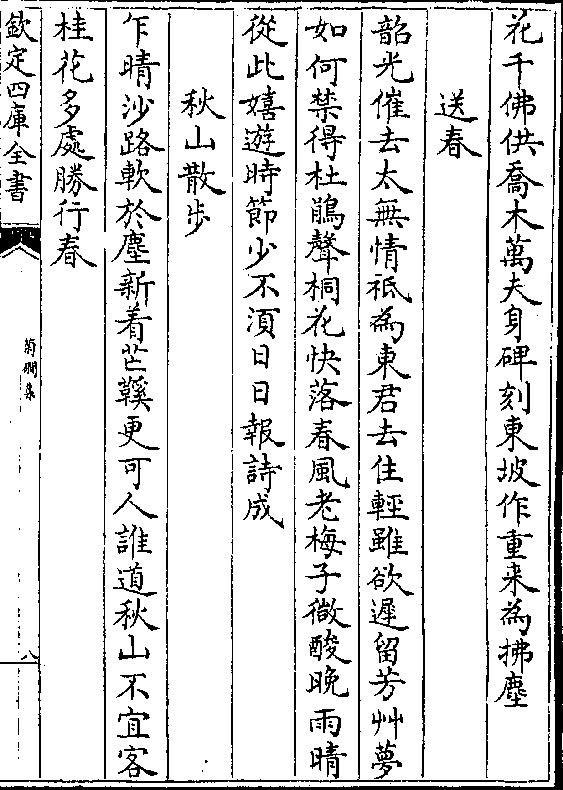 花千佛供喬木萬夫身碑刻東坡作重来為拂塵
送春
韶光催去太無情祗為東君去住輕雖欲遲留芳艸夢
如何禁得杜鵑聲桐花快落春風老梅子微酸晚雨晴
從此嬉遊時節少不湏日日報詩成
秋山散步
乍晴沙路軟於塵新着芒鞵更可人誰道秋山不宜客
桂花多處勝行春
欽定四庫全書
菊磵集
八